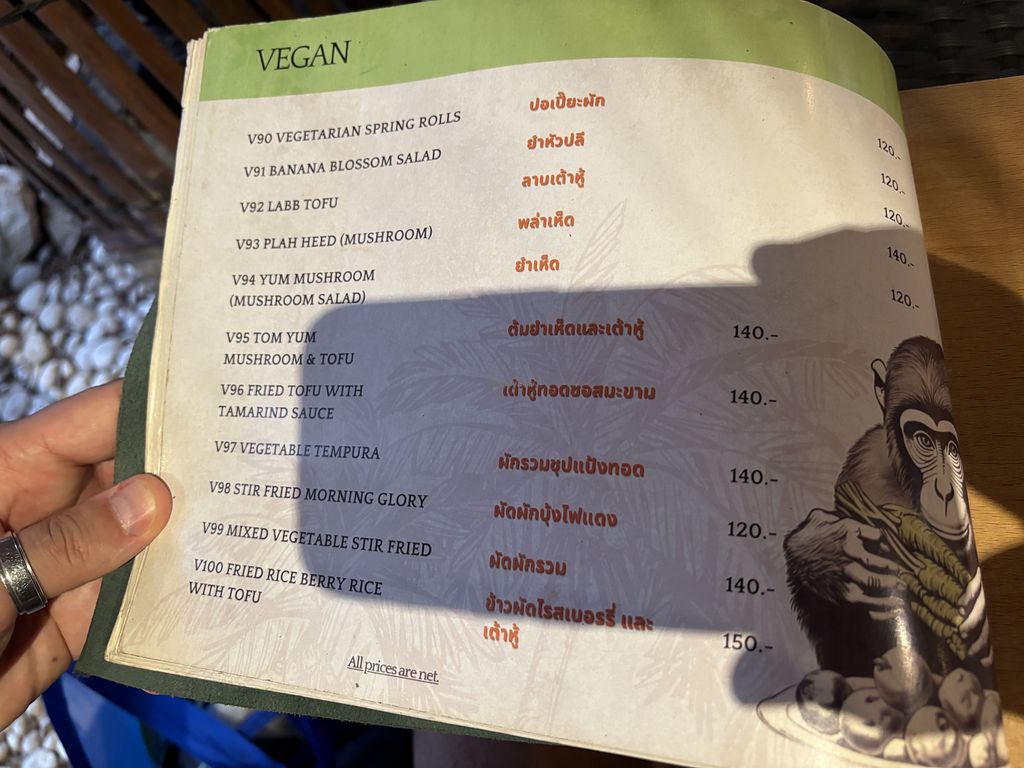 VEGAN
V90 VEGETARIAN SPRING ROLLS ปอเปี๊ยะผัก 120.-
V91 BANANA BLOSSOM SALAD ยำหัวปลี 120.-
V92 LABB TOFU ลาบเต้าหู้ 120.-
V93 PLAH HEED (MUSHROOM) พล่าเห็ด 140.-
V94 YUM MUSHROOM ยำเห็ด 120.-
(MUSHROOM SALAD)
V95 TOM YUM ต้มยำเห็ดและเต้าหู้ 140.-
MUSHROOM & TOFU
V96 FRIED TOFU WITH เต้าหู้ทอดซอสมะขาม 140.-
TAMARIND SAUCE
V97 VEGETABLE TEMPURA ผักรวมชุปแป้งทอด 140.-
V98 STIR FRIED MORNING GLORY ผัดผักบุ้งไฟแดง 120.-
V99 MIXED VEGETABLE STIR FRIED ผัดผักรวม 140.-
V100 FRIED RICE BERRY RICE ข้าวผัดไรสเบอรรี่ และ 150.-
WITH TOFU เต้าหู้
All prices are net.